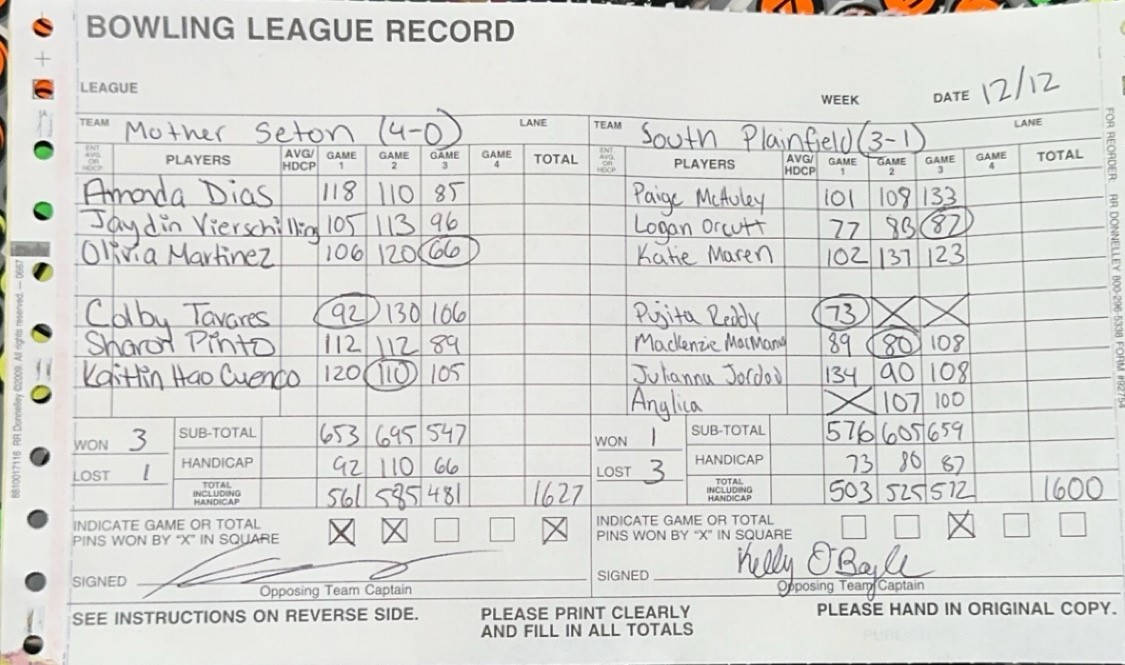 BOWLING LEAGUE RECORD
LEAGUE WEEK DATE 12/12
TEAM Mother Seton (4-0) LANE TEAM South Plainfield (3-1) LANE
ENT AVG OR HDCP PLAYERS AVG/HDCP GAME 1 GAME 2 GAME 3 GAME 4 TOTAL ENT AVG OR HDCP PLAYERS AVG/HDCP GAME 1 GAME 2 GAME 3 GAME 4 TOTAL
Amanda Dias 118 110 85 Paige McAuley 101 108 133
Jaydin Vierschilling 105 113 96 Logan Orcutt 77 83 87
Olivia Martinez 106 120 66 Katie Maren 102 137 123
Colby Tavares 92 130 106 Pujita Reddy 73 X X
Sharon Pinto 112 112 89 Mackenzie MacManu 89 80 108
Kaitlin Hao Cuenco 120 110 105 Julianna Jordad 134 90 108
Anglica X 107 100
WON 3 SUB-TOTAL 653 695 547 WON 1 SUB-TOTAL 576 605 659
LOST 1 HANDICAP 92 110 66 LOST 3 HANDICAP 73 80 87
TOTAL INCLUDING HANDICAP 561 585 481 1627 TOTAL INCLUDING HANDICAP 503 525 572 1600
INDICATE GAME OR TOTAL PINS WON BY "X" IN SQUARE X X X INDICATE GAME OR TOTAL PINS WON BY "X" IN SQUARE X
SIGNED SIGNED Kelly O'Bayle
Opposing Team Captain Opposing Team Captain
SEE INSTRUCTIONS ON REVERSE SIDE. PLEASE PRINT CLEARLY AND FILL IN ALL TOTALS PLEASE HAND IN ORIGINAL COPY.
8810017116 RR Donnelley ©2009. All rights reserved. — 0667
FOR REORDER: RR DONNELLEY 800-296-5338 FORM #92754